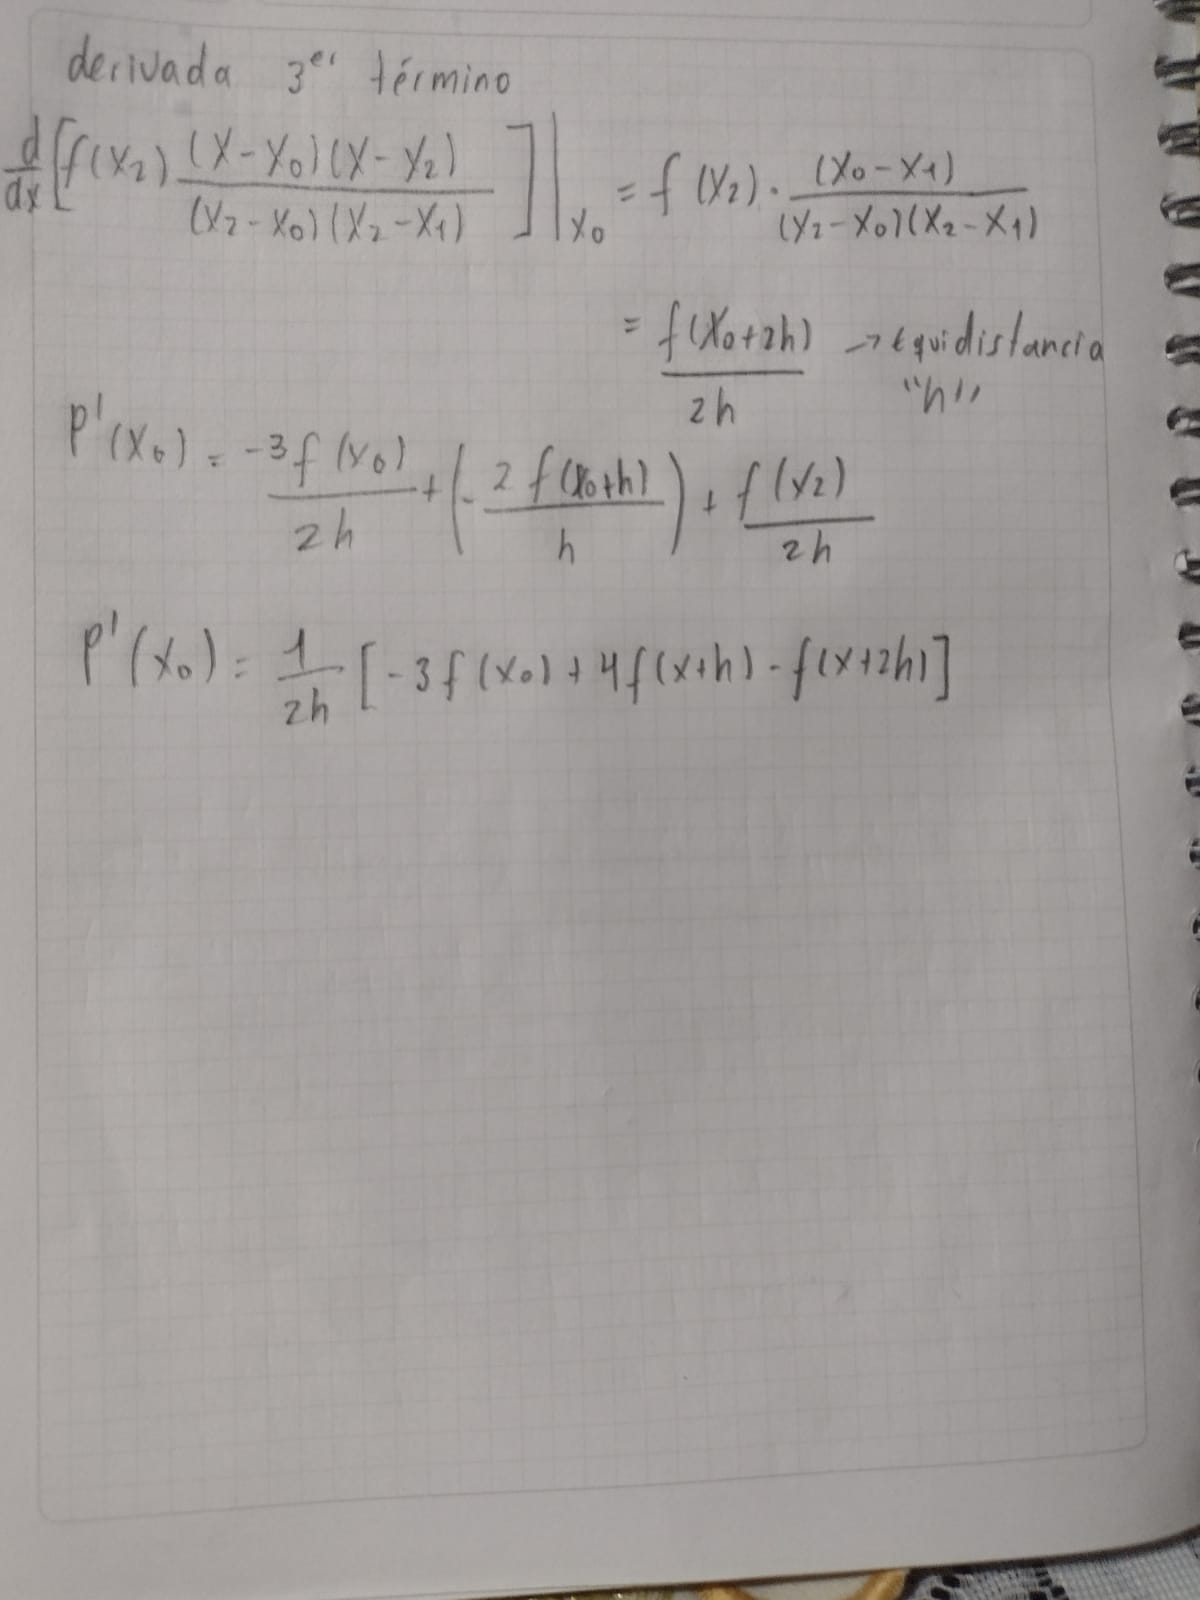 derivada 3er término
d/dx [f(x2) (x-x0)(x-x2) / (x2-x0)(x2-x1)] |x0 = f(x2) · (x0-x1) / (x2-x0)(x2-x1)
= f(x0+2h) / 2h → Equidistancia "h"
P'(x0) = -3f(x0) / 2h + (- 2f(x0+h) / h) + f(x2) / 2h
P'(x0) = 1/2h [-3f(x0) + 4f(x+h) - f(x+2h)]